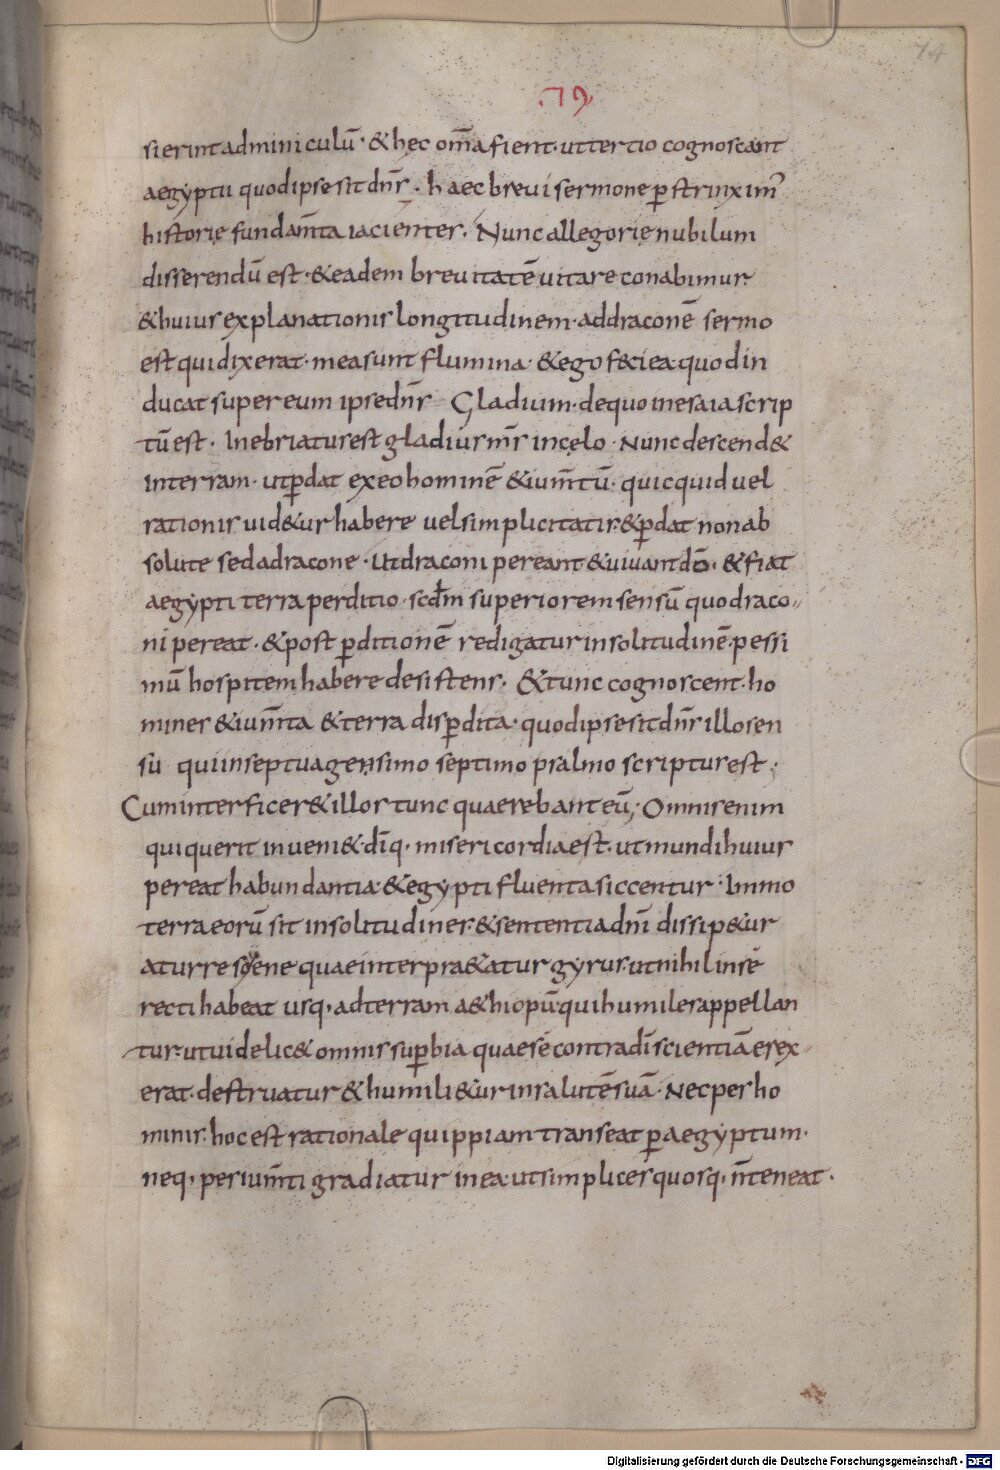 74
.79.
sierint adminiculū · & hęc om̄a fient · ut tertio cognoscant
aegyptii quod ipse sit dn̄s · haec brevi sermone ꝑstrinxim᾽
historię fundam̄ta iacientes · Nunc allegorię nubilum
disserendū est · & eadem brevitatē vitare conabimur
& huius explanationis longitudinem · ad draconē sermo
est qui dixerat · mea sunt flumina · & ego feci ea · quod in
ducat super eum ipse dn̄s Gladium · de quo in esaia scrip
tū est · Inebriatus est gladius m̄s in cęlo · Nunc descend&
in terram · ut ꝑdat ex eo hominē & ium̄tū · quicquid vel
rationis uid&ur habere uel simplicitatis · & ꝑdat non ab
solute sed a dracone · Ut draconi pereant & uiuant dō · & fiat
aegypti terra perditio · scdm̄ superiorem sensū quo draco
ni pereat · & post ꝑditionē redigatur in solitudinē · pessi
mū hospitem habere desistens · & tunc cognoscent · ho
mines & ium̄ta & terra disꝑdita · quod ipse sit dn̄s illo sen
su qui in septuagensimo septimo psalmo scriptus est ·
Cum interficer& illos tunc quaerebant eū; Omnis enim
qui querit inueni& · dīq· misericordia est · ut mundi huius
pereat habundantia · & egypti fluenta siccentur · Immo
terra eorū sit in solitudines · & sententia dn̄i dissip&ur
a turre syene quae interpra&atur gyrus · ut nihil in sé
recti habeat usq· ad terram a&hiopū · qui humiles appellan
tur · ut uidelic& omnis suꝑbia quae sé contra dī scientiā erex
erat · destruatur & humili&ur in salutē suā · Nec pes ho
minis · hoc est rationale quippiam transeat ꝑ aegyptum ·
neq· pes ium̄ti gradiatur in ea · ut simplices quosq· n̄ teneat ·
Digitalisierung gefördert durch die Deutsche Forschungsgemeinschaft - DFG